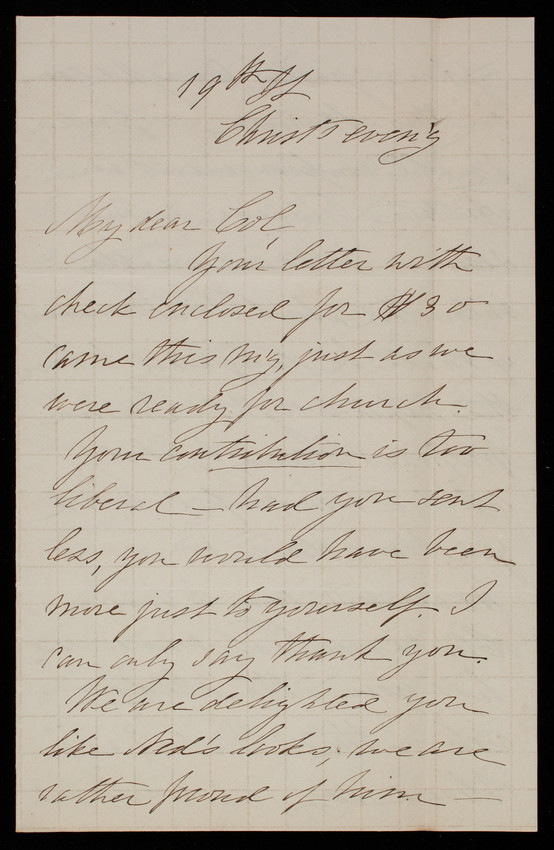 19th St
Christ's even'g
My dear Col
Your letter with
check enclosed for $30
came this m'g, just as we
were ready for church.
Your contribution is too
liberal — had you sent
less, you would have been
more just to yourself. I
can only say thank you.
We are delighted you
like Ned's looks; we are
rather proud of him —